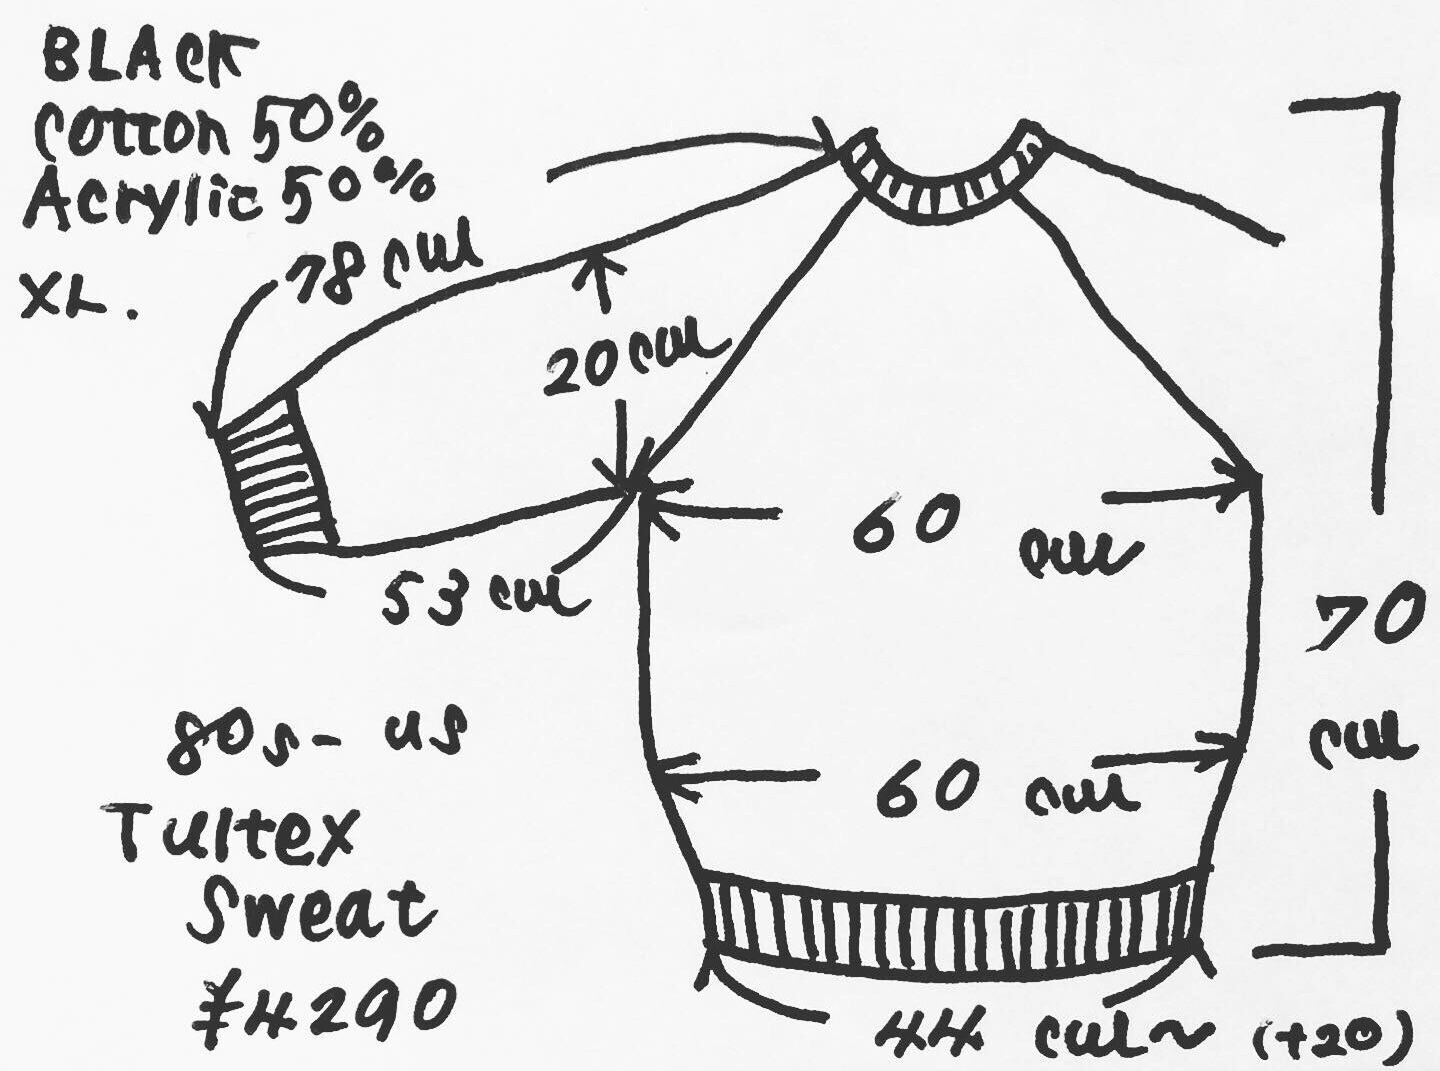 BLACK
Cotton 50%
Acrylic 50%
XL.
78 cm
20 cm
60 cm
53 cm
70 cm
60 cm
80s - us
Tultex
Sweat
¥4290
44 cm~ (+20)